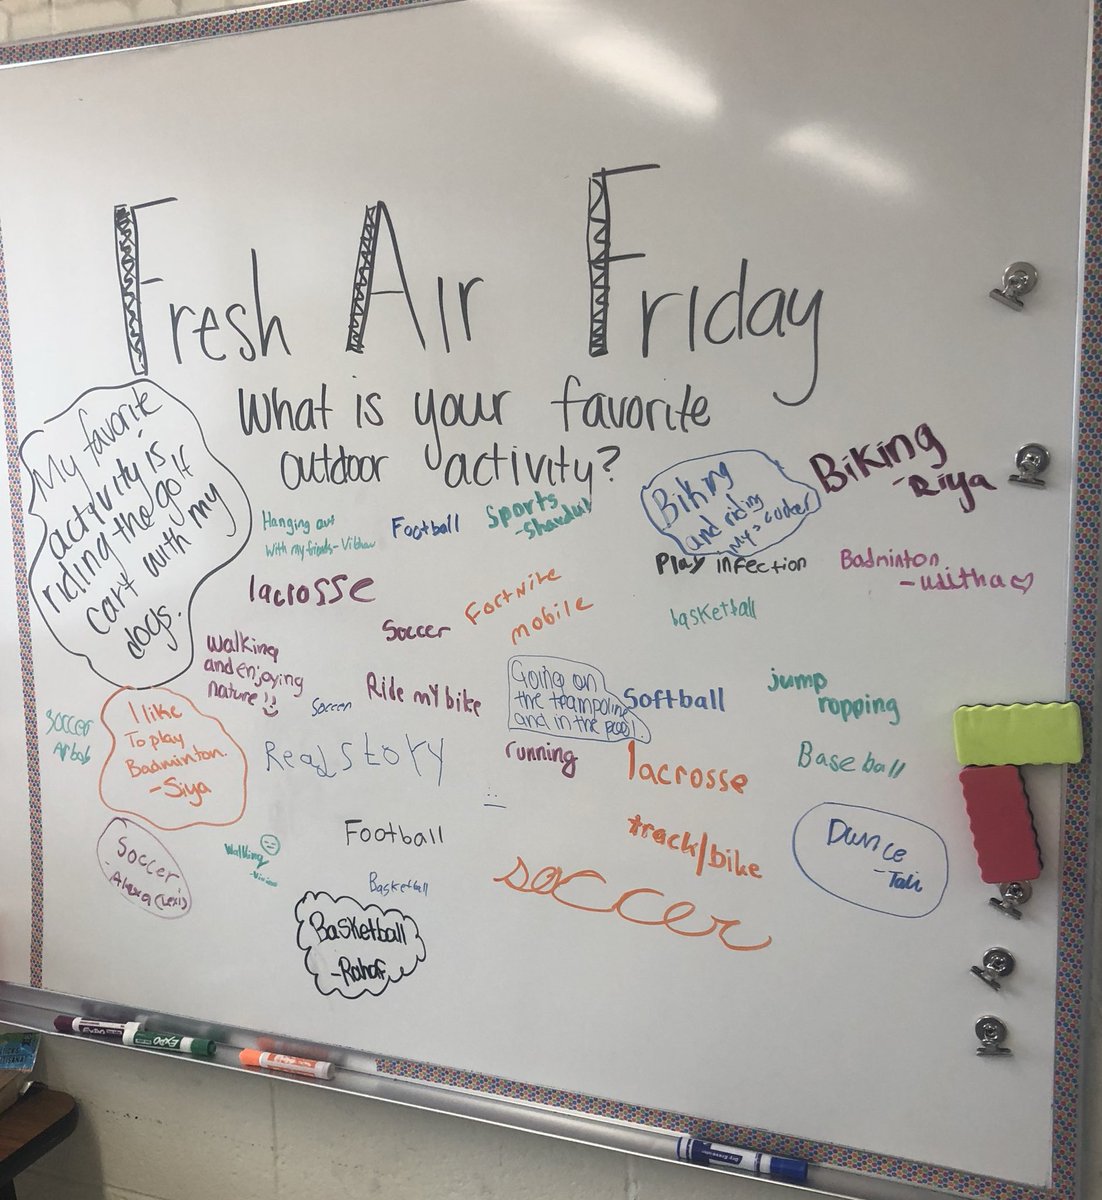 Fresh Air Friday
What is your favorite
outdoor activity?
My favorite
activity is
riding the golf
cart with my
dogs.
Hanging out
with my friends - Vibhav
Football
Sports
- Shardul
Biking
and riding
my
Biking
- Riya
lacrosse
Soccer
Fortnite
mobile
Play infection
basketball
Badminton
- Usitha
Walking
and enjoying
nature!!
Soccer
Ride my bike
Going on
the teampoline
and in the pool!
Softball
jump
ropping
Soccer
Arbab
I like
To play
Badminton.
- Siya
Read story
running
lacrosse
Baseball
Soccer
- Alexa (Lexi)
Walking
Football
Basketball
track/bike
Dance
- Tali
soccer
Basketball
- Rahaf
EXPO